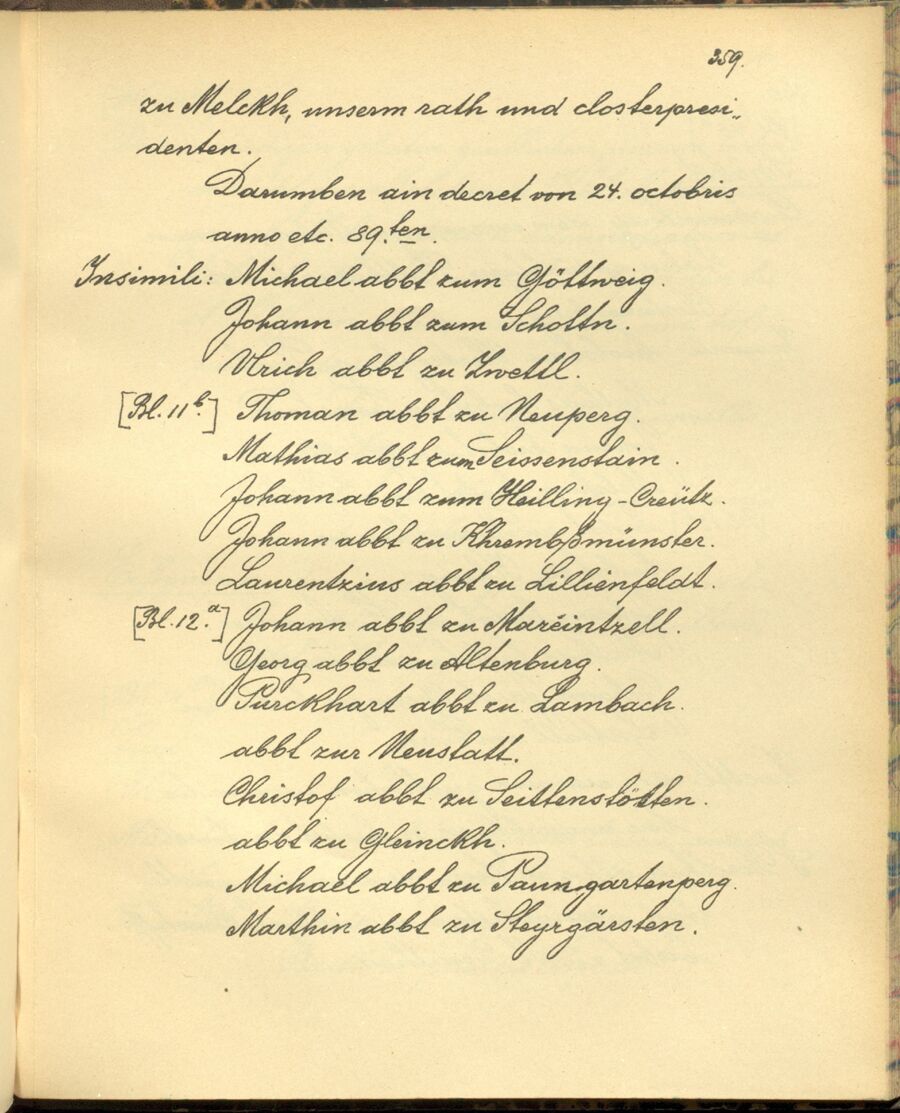 359.
zu Melckh, unserm rath und closterpresi„
denten.
Darumben ain decret von 24. octobris
anno etc. 89.ten.
Insimili: Michael abbt zum Göttweig.
Johann abbt zum Schottn.
Ulrich abbt zu Zwettl.
[Bl. 11b.] Thoman abbt zu Neuperg.
Mathias abbt zum Seissenstain.
Johann abbt zum Heilling-Creütz.
Johann abbt zu Khrembßmünster.
Laurentzius abbt zu Lillienfeldt.
[Bl. 12.a] Johann abbt zu Mareintzell.
Georg abbt zu Altenburg.
Purckhart abbt zu Lambach.
abbt zur Neustatt.
Christof abbt zu Seittenstötten.
abbt zu Gleinckh.
Michael abbt zu Paumgartenperg.
Marthin abbt zu Steyrgärsten.